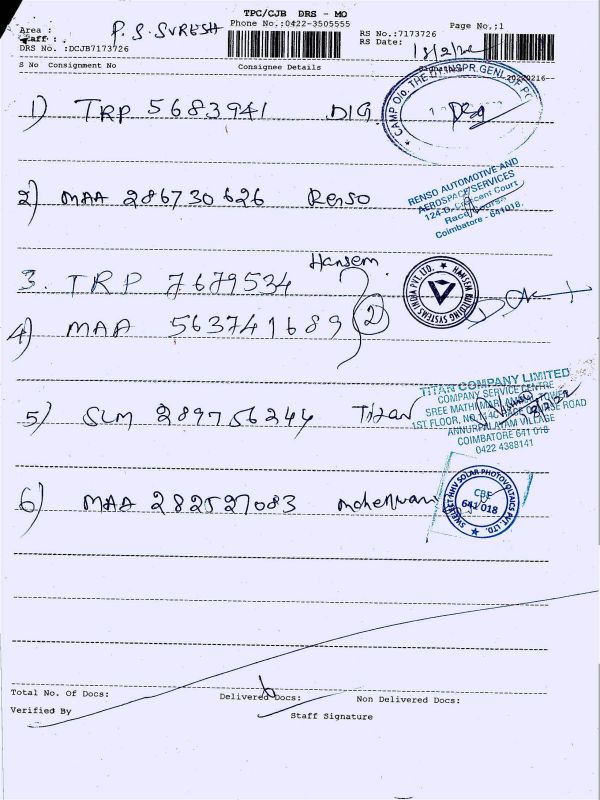 TPC/CJB DRS - MO
Area : P. S. SURESH Phone No.:0422-3505555 Page No.:1
Staff : RS No.:7173726
DRS No. :DCJB7173726 RS Date: 18/2/22
S No Consignment No Consignee Details Signature
20220216
1) TRP 5683941 DIG
CAMP O/o. THE DY.INSPR.GENL.OF
2) MAA 286730626 Renso
RENSO AUTOMOTIVE AND
AEROSPACE SERVICES
124-D, Crescent Court
Race Course
Coimbatore - 641018.
Hansem
3. TRP 7679534
4) MAA 563741689 2
HANSEN BUILDING SYSTEMS INDIA PVT. LTD.
5) SLM 289756244 Titan
TITAN COMPANY LIMITED
COMPANY SERVICE CENTRE
SREE MATHI TOWER
1ST FLOOR, RACE COURSE ROAD
ANNUPPALAYAM VILLAGE
COIMBATORE 641 018
0422 4388141
6) MAA 282527083
SWELECT HHV SOLAR PHOTOVOLTAICS PVT. LTD.
CBE
641 018
Total No. Of Docs: Delivered Docs: 6 Non Delivered Docs:
Verified By Staff Signature